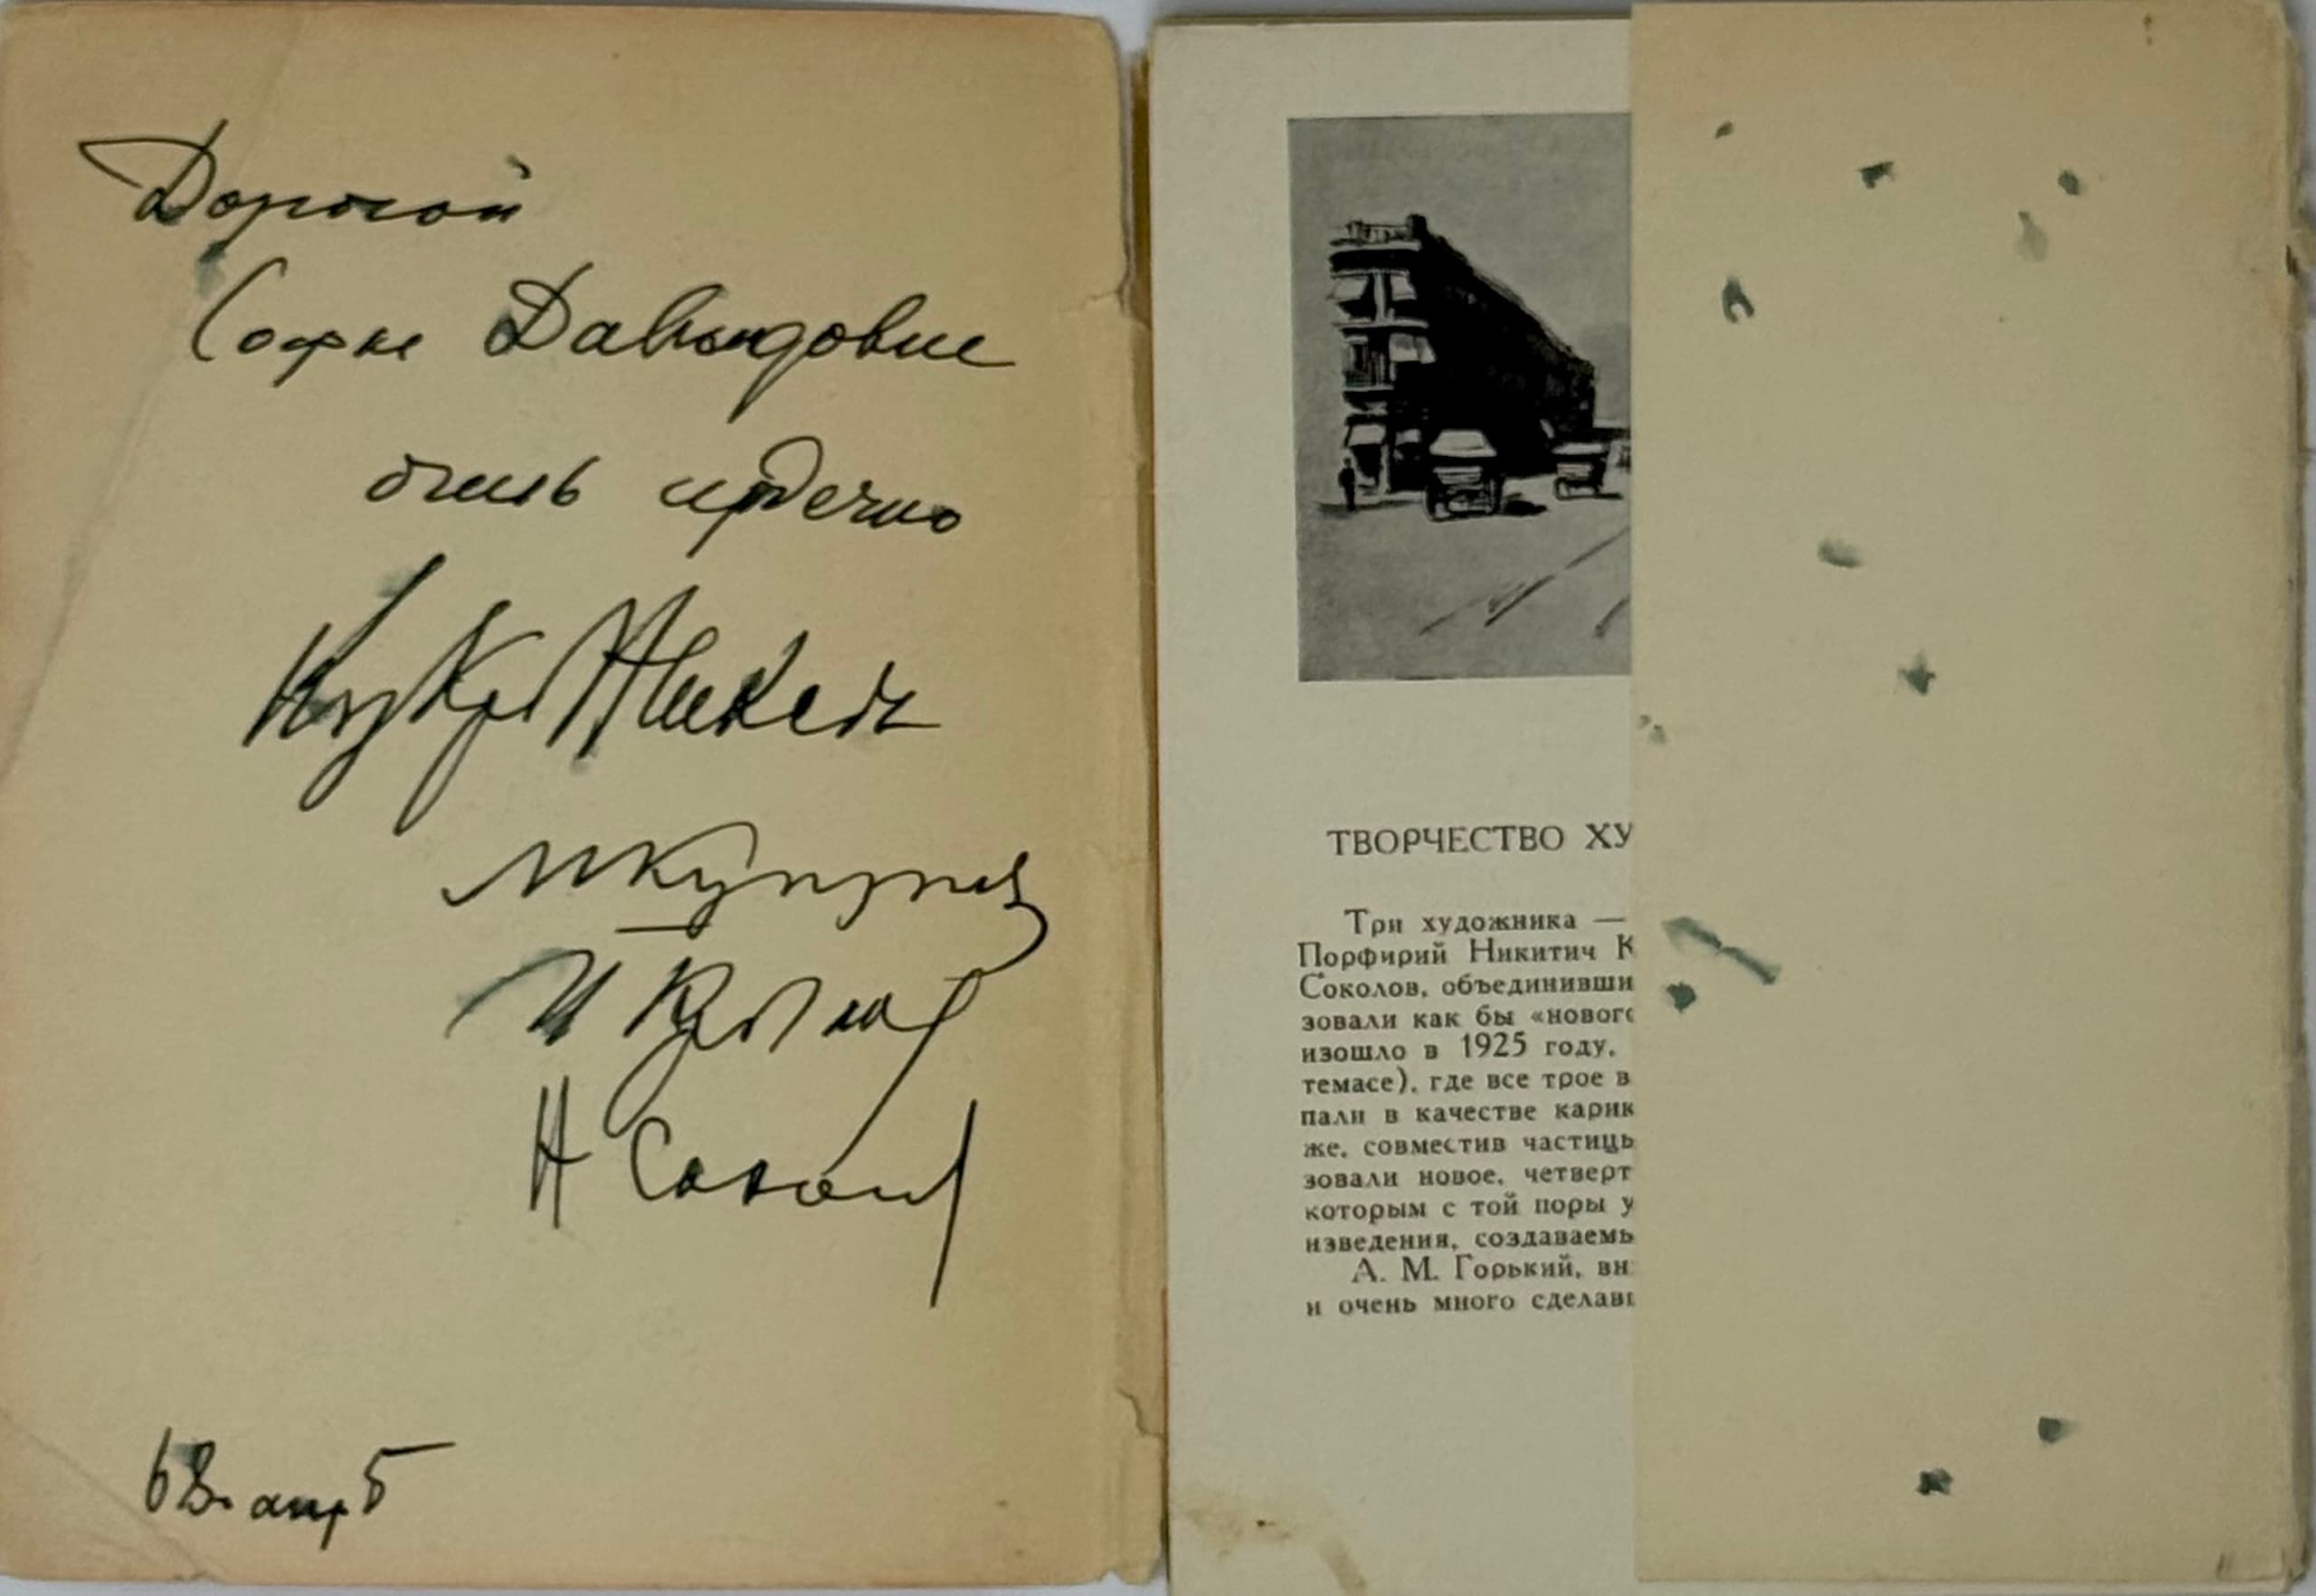 Дорогой
Софье Давыдовне
очень сердечно
Кукрыниксы
М Куприянов
П Крылов
Н Соколов
апр 5
ТВОРЧЕСТВО ХУ
Три художника —
Порфирий Никитич К
Соколов, объединивши
зовали как бы «нового
изошло в 1925 году,
темасе), где все трое в
пали в качестве карик
же, совместив частицы
зовали новое, четверт
которым с той поры у
изведения, создаваемы
А. М. Горький, вн
и очень много сделавш